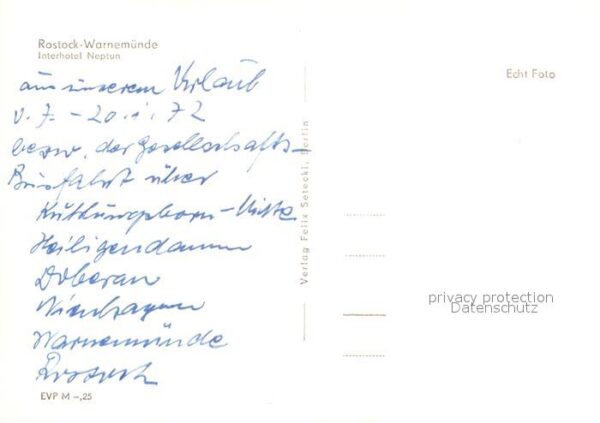 Rostock-Warnemünde
Interhotel Neptun
Echt Foto
aus unserem Urlaub
v. 7. - 20. 1. 72
bezw. der Gesellschafts-
Busfahrt über
Heiligendamm
Doberan
Nienhagen
Warnemünde
Rostock
EVP M -,25
Verlag Felix Setecki, Berlin
privacy protection
Datenschutz